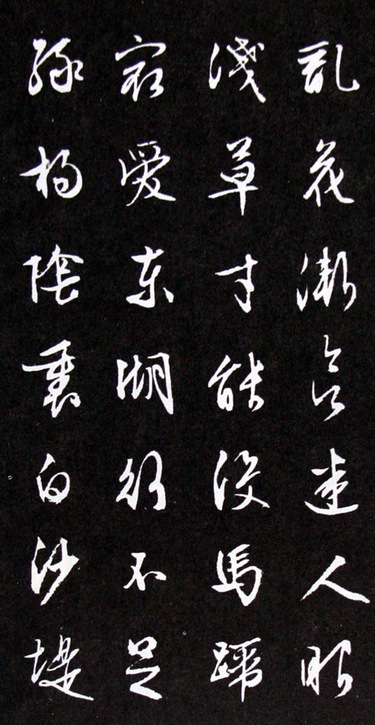 亂花漸欲迷人眼
淺草才能沒馬蹄
最愛東湖行不足
綠楊陰裏白沙堤